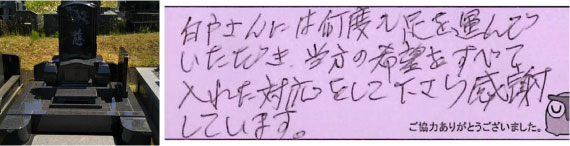 白戸さんには何度も足を運んで
いただき、当方の希望をすべて
入れた対応をして下さり感謝
しています。
ご協力ありがとうございました。